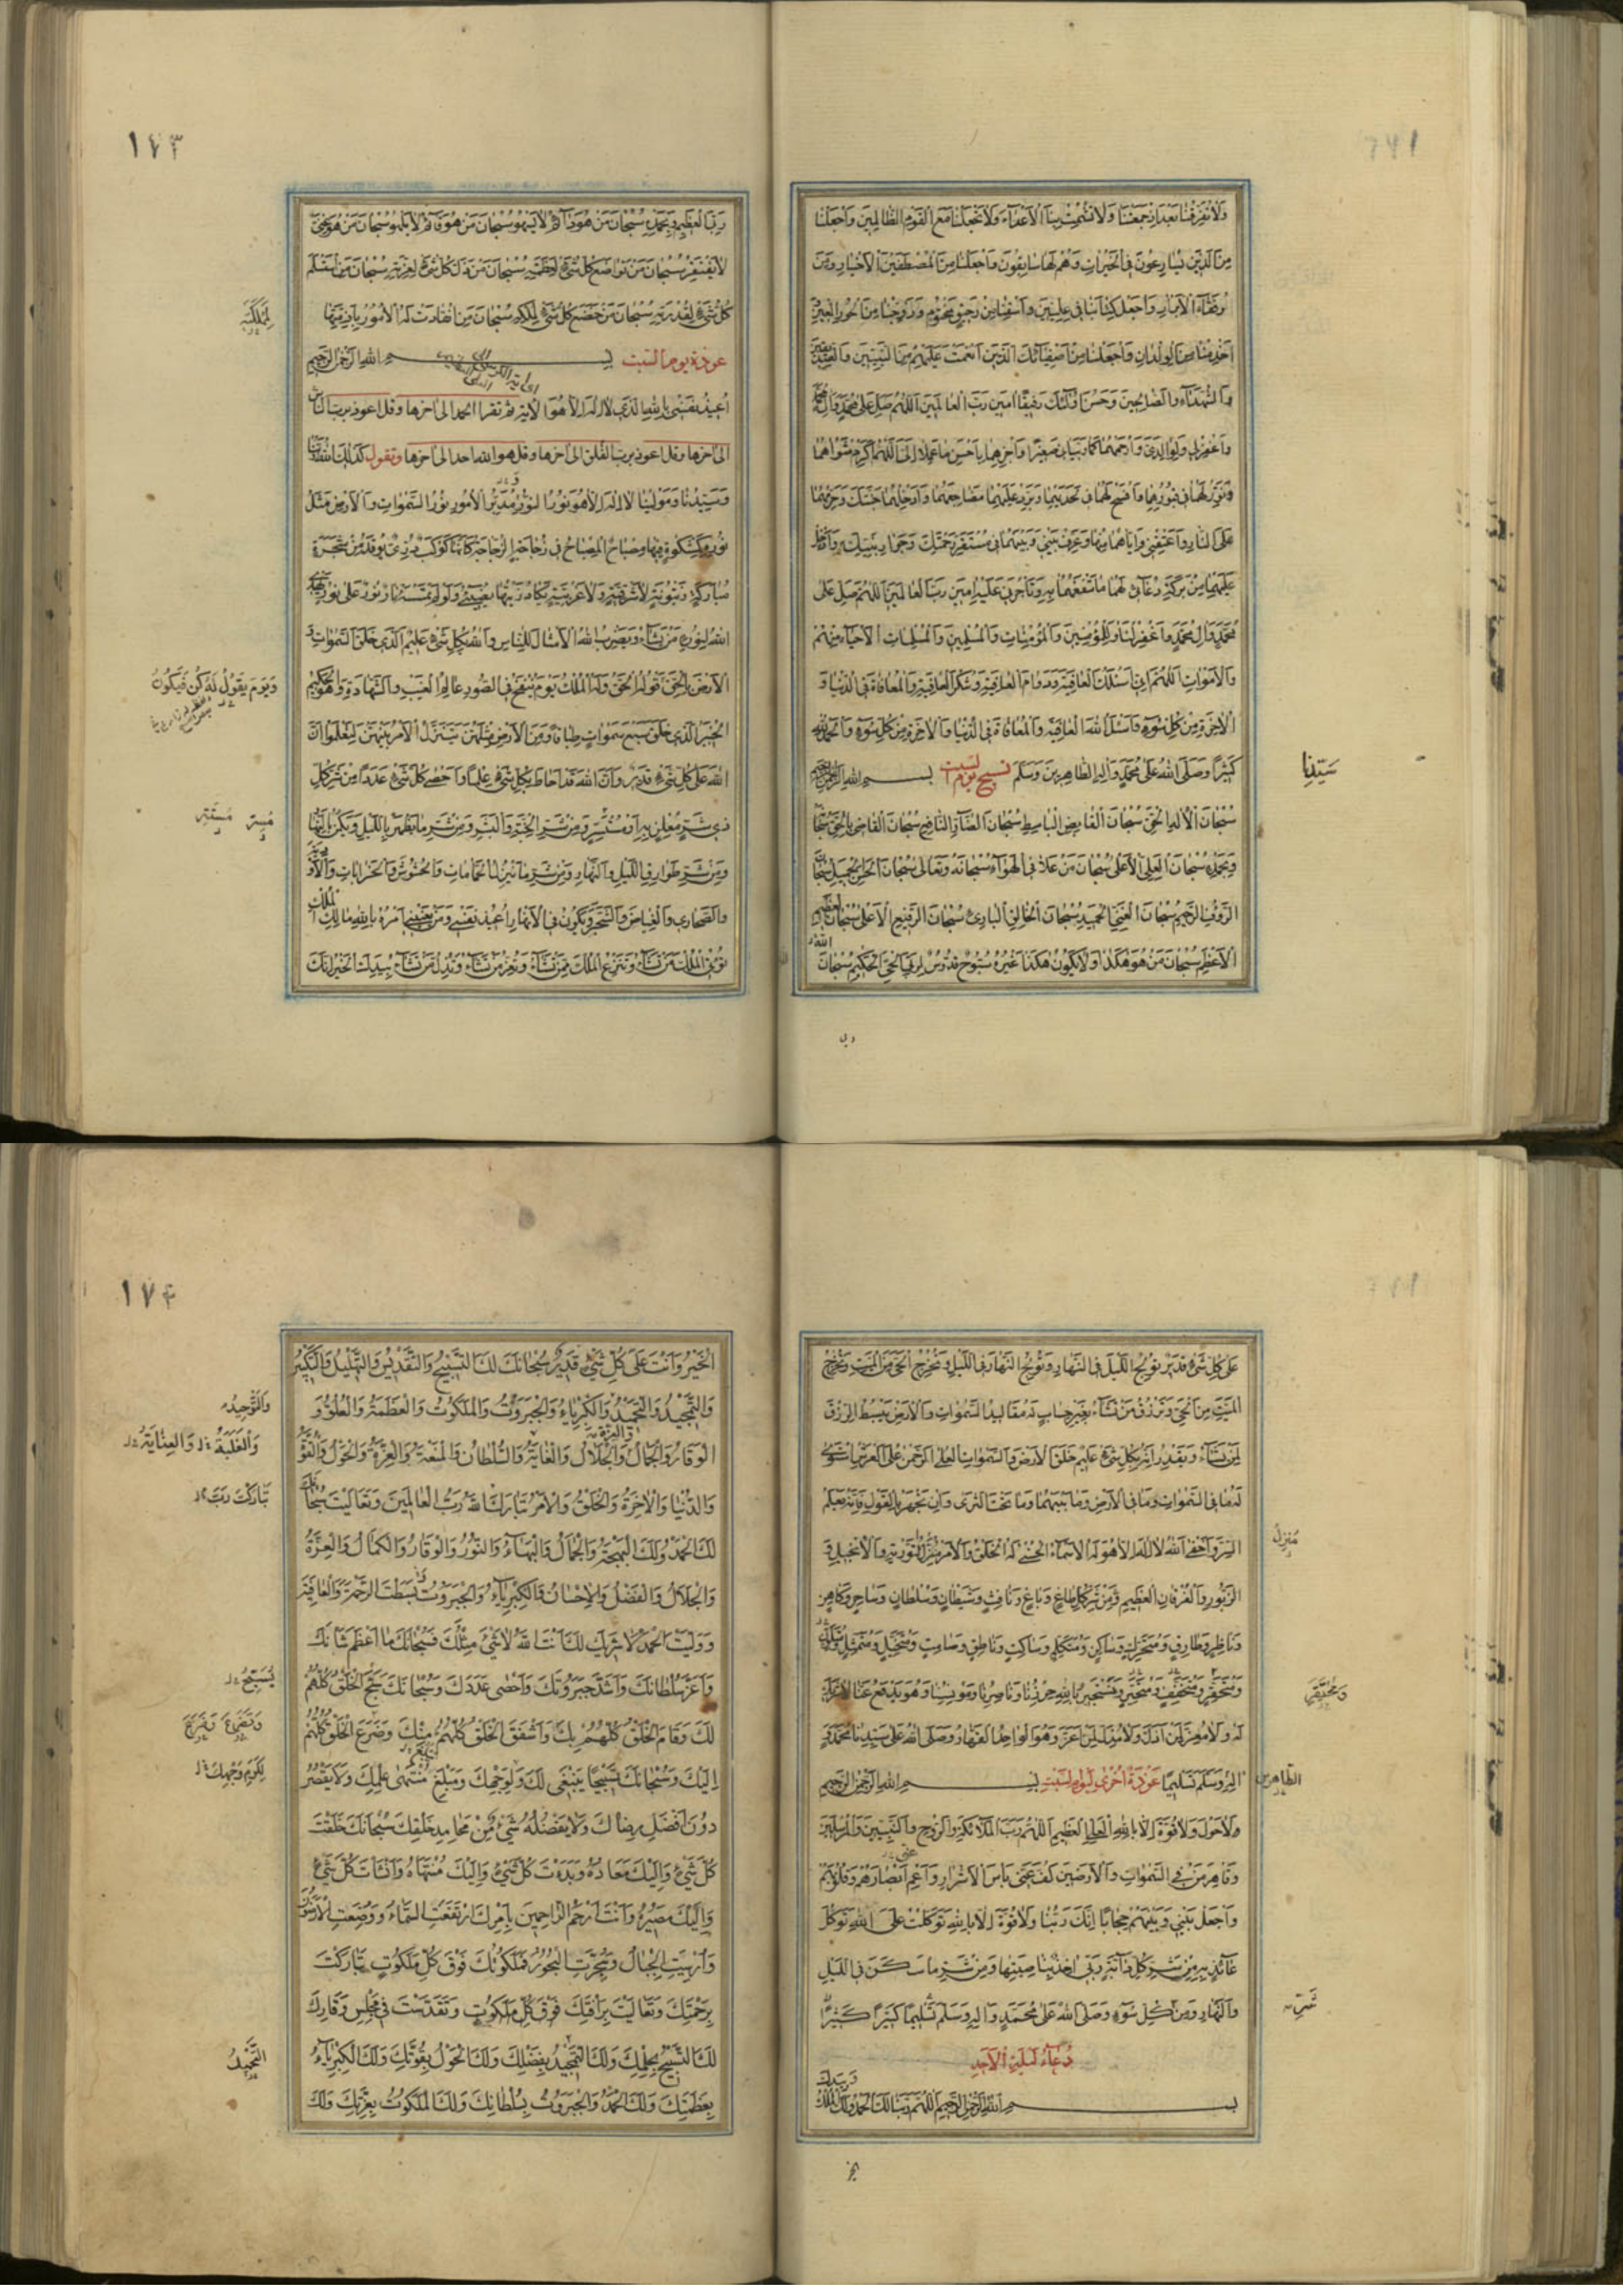 وَلَا تُفَرِّقْنَا بَعْدَ اِذْ جَمَعْتَنَا وَلَا تُشْمِتْ بِنَا الْأَعْدَاءَ وَلَا تَجْعَلْنَا مَعَ الْقَوْمِ الظَّالِمِينَ وَاجْعَلْنَا
مِنَ الَّذِينَ يُسَارِعُونَ فِي الْخَيْرَاتِ وَهُمْ لَهَا سَابِقُونَ وَاجْعَلْنَا مِنَ الْمُصْطَفَيْنَ الْأَخْيَارِ وَمِنْ
رُفَقَاءِ الْأَبْرَارِ وَاجْعَلْ كِتَابَنَا فِي عِلِّيِّينَ وَاسْقِنَا مِنْ رَحِيقٍ مَخْتُومٍ وَزَوِّجْنَا مِنَ الْحُورِ الْعِينِ
اَخْدِمْنَا مِنَ الْوِلْدَانِ وَاجْعَلْنَا مِنْ اَصْفِيَائِكَ الَّذِينَ اَنْعَمْتَ عَلَيْهِمْ مِنَ النَّبِيِّينَ وَالصِّدِّيقِينَ
وَالشُّهَدَاءِ وَالصَّالِحِينَ وَحَسُنَ اُولَئِكَ رَفِيقًا اٰمِينَ رَبَّ الْعَالَمِينَ اَللّٰهُمَّ صَلِّ عَلَى مُحَمَّدٍ وَآلِ مُحَمَّدٍ
وَاغْفِرْ لِي وَلِوَالِدَيَّ وَارْحَمْهُمَا كَمَا رَبَّيَانِي صَغِيرًا وَاجْزِهِمَا بِاَحْسَنِ مَا عَمِلَا اِلَيَّ اَللّٰهُمَّ اَكْرِمْ مَثْوَاهُمَا
وَنَوِّرْ لَهُمَا فِي قُبُورِهِمَا وَافْسَحْ لَهُمَا فِي لَحْدَيْهِمَا وَبَرِّدْ عَلَيْهِمَا مَضَاجِعَهُمَا وَاَدْخِلْهُمَا جَنَّتَكَ وَحَرِّمْهُمَا
عَلَى النَّارِ وَاَعْتِقْنِي وَاِيَّاهُمَا مِنْهَا وَعَرِّفْ بَيْنِي وَبَيْنَهُمَا فِي مُسْتَقَرِّ رَحْمَتِكَ وَجِوَارِ نَبِيِّكَ وَاَدْخِلْ
عَلَيْهِمَا مِنْ بَرَكَةِ دُعَائِي لَهُمَا مَا تَنْفَعُهُمَا بِهِ وَتَاْجُرُنِي عَلَيْهِ اٰمِينَ رَبَّ الْعَالَمِينَ اَللّٰهُمَّ صَلِّ عَلَى
مُحَمَّدٍ وَآلِ مُحَمَّدٍ وَاغْفِرْ لَنَا وَلِلْمُؤْمِنِينَ وَالْمُؤْمِنَاتِ وَالْمُسْلِمِينَ وَالْمُسْلِمَاتِ الْأَحْيَاءِ مِنْهُمْ
وَالْأَمْوَاتِ اَللّٰهُمَّ اِنِّي اَسْئَلُكَ الْعَافِيَةَ وَدَوَامَ الْعَافِيَةِ وَشُكْرَ الْعَافِيَةِ وَالْمُعَافَاةَ فِي الدُّنْيَا وَ
الْاٰخِرَةِ مِنْ كُلِّ سُوءٍ وَاَسْئَلُ اللّٰهَ الْعَافِيَةَ وَالْمُعَافَاةَ فِي الدُّنْيَا وَالْاٰخِرَةِ مِنْ كُلِّ سُوءٍ وَالْحَمْدُ لِلّٰهِ
كَثِيرًا وَصَلَّى اللّٰهُ عَلَى مُحَمَّدٍ وَآلِهِ الطَّاهِرِينَ وَسَلَّمَ تسبيح يوم السبت بسم الله الرحمن الرحيم
سَيِّدِنَا
سُبْحَانَ الْاِلٰهِ الْحَقِّ سُبْحَانَ الْقَابِضِ الْبَاسِطِ سُبْحَانَ الضَّارِّ النَّافِعِ سُبْحَانَ الْقَاضِي بِالْحَقِّ سُبْحَانَهُ
وَبِحَمْدِهِ سُبْحَانَ الْعَلِيِّ الْأَعْلَى سُبْحَانَ مَنْ عَلَا فِي الْهَوَاءِ سُبْحَانَهُ وَتَعَالَى سُبْحَانَ الْحَسَنِ الْجَمِيلِ سُبْحَانَ
الرَّؤُفِ الرَّحِيمِ سُبْحَانَ الْغَنِيِّ الْحَمِيدِ سُبْحَانَ الْخَالِقِ الْبَارِئِ سُبْحَانَ الرَّفِيعِ الْأَعْلَى سُبْحَانَ الْعَظِيمِ
الْأَعْظَمِ سُبْحَانَ مَنْ هُوَ هٰكَذَا وَلَا يَكُونُ هٰكَذَا غَيْرُهُ سُبُّوحٌ قُدُّوسٌ لِرَبِّيَ الْحَقِّ الْحَكِيمِ سُبْحَانَ
الله
رب
١٧٣
رَبِّيَ الْعَظِيمِ وَبِحَمْدِهِ سُبْحَانَ مَنْ هُوَ دَائِمٌ لَا يَسْهُو سُبْحَانَ مَنْ هُوَ قَائِمٌ لَا يَلْهُو سُبْحَانَ مَنْ هُوَ غَنِيٌّ
لَا يَفْتَقِرُ سُبْحَانَ مَنْ تَوَاضَعَ كُلُّ شَيْءٍ لِعَظَمَتِهِ سُبْحَانَ مَنْ ذَلَّ كُلُّ شَيْءٍ لِعِزَّتِهِ سُبْحَانَ مَنِ اسْتَسْلَمَ
كُلُّ شَيْءٍ لِقُدْرَتِهِ سُبْحَانَ مَنْ خَضَعَ كُلُّ شَيْءٍ لِمُلْكِهِ سُبْحَانَ مَنِ انْقَادَتْ لَهُ الْأُمُورُ بِاَزِمَّتِهَا
لِمَمْلَكَتِهِ
عوذة يوم السبت بسم الله الرحمن الرحيم
اُعِيذُ نَفْسِي بِاللّٰهِ الَّذِي لَا اِلٰهَ اِلَّا هُوَ الْاٰيَةَ ثم تقرا الحمد الى اخرها وقل اعوذ برب الناس
الى اخرها وقل اعوذ برب الفلق الى اخرها وقل هو الله احد الى اخرها وتقول كَذٰلِكَ اللّٰهُ رَبُّنَا
وَسَيِّدُنَا وَمَوْلٰينَا لَا اِلٰهَ اِلَّا هُوَ نُورُ النُّورِ مُدَبِّرُ الْأُمُورِ نُورُ السَّمٰوَاتِ وَالْأَرْضِ مَثَلُ
نُورِهِ كَمِشْكٰوةٍ فِيهَا مِصْبَاحٌ الْمِصْبَاحُ فِي زُجَاجَةٍ الزُّجَاجَةُ كَاَنَّهَا كَوْكَبٌ دُرِّيٌّ يُوقَدُ مِنْ شَجَرَةٍ
مُبَارَكَةٍ زَيْتُونَةٍ لَا شَرْقِيَّةٍ وَلَا غَرْبِيَّةٍ يَكَادُ زَيْتُهَا يُضِيءُ وَلَوْ لَمْ تَمْسَسْهُ نَارٌ نُورٌ عَلَى نُورٍ يَهْدِي
اللّٰهُ لِنُورِهِ مَنْ يَشَاءُ وَيَضْرِبُ اللّٰهُ الْأَمْثَالَ لِلنَّاسِ وَاللّٰهُ بِكُلِّ شَيْءٍ عَلِيمٌ الَّذِي خَلَقَ السَّمٰوَاتِ وَ
الْأَرْضَ بِالْحَقِّ قَوْلُهُ الْحَقُّ وَلَهُ الْمُلْكُ يَوْمَ يُنْفَخُ فِي الصُّورِ عَالِمُ الْغَيْبِ وَالشَّهَادَةِ وَهُوَ الْحَكِيمُ
وَيَوْمَ يَقُولُ لَهُ كُنْ فَيَكُونُ
الْخَبِيرُ الَّذِي خَلَقَ سَبْعَ سَمٰوَاتٍ طِبَاقًا وَمِنَ الْأَرْضِ مِثْلَهُنَّ يَتَنَزَّلُ الْأَمْرُ بَيْنَهُنَّ لِتَعْلَمُوا اَنَّ
اللّٰهَ عَلَى كُلِّ شَيْءٍ قَدِيرٌ وَاَنَّ اللّٰهَ قَدْ اَحَاطَ بِكُلِّ شَيْءٍ عِلْمًا وَاَحْصَى كُلَّ شَيْءٍ عَدَدًا مِنْ شَرِّ كُلِّ
ذِي شَرٍّ مُعْلِنٍ بِهِ اَوْ مُسْتَسِرٍّ وَمِنْ شَرِّ الْجِنَّةِ وَالْبَشَرِ وَمِنْ شَرِّ مَا يَظْهَرُ بِاللَّيْلِ وَيَكْمُنُ بِالنَّهَارِ
مُسِرٍّ مُسْتَتِرٍ
وَمِنْ شَرِّ طَوَارِقِ اللَّيْلِ وَالنَّهَارِ وَمِنْ شَرِّ مَا يَنْزِلُ الْحَمَّامَاتِ وَالْحُشُوشَ وَالْخَرَابَاتِ وَالْأَوْدِيَةَ
وَالصَّحَارِي وَالْغِيَاضَ وَالشَّجَرَ وَيَكُونُ فِي الْأَنْهَارِ اُعِيذُ نَفْسِي وَمَنْ يَعْنِينِي اَمْرُهُ بِاللّٰهِ مَالِكِ الْمُلْكِ
تُؤْتِي الْمُلْكَ مَنْ تَشَاءُ وَتَنْزِعُ الْمُلْكَ مِمَّنْ تَشَاءُ وَتُعِزُّ مَنْ تَشَاءُ وَتُذِلُّ مَنْ تَشَاءُ بِيَدِكَ الْخَيْرُ اِنَّكَ
عَلَى كُلِّ شَيْءٍ قَدِيرٌ تُولِجُ اللَّيْلَ فِي النَّهَارِ وَتُولِجُ النَّهَارَ فِي اللَّيْلِ وَتُخْرِجُ الْحَيَّ مِنَ الْمَيِّتِ وَتُخْرِجُ
الْمَيِّتَ مِنَ الْحَيِّ وَتَرْزُقُ مَنْ تَشَاءُ بِغَيْرِ حِسَابٍ لَهُ مَقَالِيدُ السَّمٰوَاتِ وَالْأَرْضِ يَبْسُطُ الرِّزْقَ
لِمَنْ يَشَاءُ وَيَقْدِرُ اِنَّهُ بِكُلِّ شَيْءٍ عَلِيمٌ خَلَقَ الْأَرْضَ وَالسَّمٰوَاتِ الْعُلَى الرَّحْمٰنُ عَلَى الْعَرْشِ اسْتَوٰى
لَهُ مَا فِي السَّمٰوَاتِ وَمَا فِي الْأَرْضِ وَمَا بَيْنَهُمَا وَمَا تَحْتَ الثَّرٰى وَاِنْ تَجْهَرْ بِالْقَوْلِ فَاِنَّهُ يَعْلَمُ
السِّرَّ وَاَخْفٰى اَللّٰهُ لَا اِلٰهَ اِلَّا هُوَ لَهُ الْأَسْمَاءُ الْحُسْنٰى لَهُ الْخَلْقُ وَالْأَمْرُ مُنْزِلُ التَّوْرٰيةِ وَالْاِنْجِيلِ وَ
مُنَزِّلُ
الزَّبُورِ وَالْفُرْقَانِ الْعَظِيمِ وَمِنْ شَرِّ كُلِّ طَاغٍ وَبَاغٍ وَنَافِثٍ وَشَيْطَانٍ وَسُلْطَانٍ وَسَاحِرٍ وَكَاهِنٍ
وَنَاظِرٍ وَطَارِقٍ وَمُتَحَرِّكٍ وَسَاكِنٍ وَمُتَكَلِّمٍ وَسَاكِتٍ وَنَاطِقٍ وَصَامِتٍ وَمُتَخَيِّلٍ وَمُتَمَثِّلٍ وَمُتَلَوِّنٍ
نَسْتَجِيرُ بِاللّٰهِ حِرْزِنَا وَنَاصِرِنَا وَمُونِسِنَا وَهُوَ يَدْفَعُ عَنَّا لَا شَرِيكَ
لَهُ وَلَا مُعِزَّ لِمَنْ اَذَلَّ وَلَا مُذِلَّ لِمَنْ اَعَزَّ وَهُوَ الْوَاحِدُ الْقَهَّارُ وَصَلَّى اللّٰهُ عَلَى سَيِّدِنَا مُحَمَّدٍ وَ
اٰلِهِ وَسَلَّمَ تَسْلِيمًا عوذة اخرى ليوم السبت بسم الله الرحمن الرحيم
الطاهرين
وَلَا حَوْلَ وَلَا قُوَّةَ اِلَّا بِاللّٰهِ الْعَلِيِّ الْعَظِيمِ اَللّٰهُمَّ رَبَّ الْمَلَائِكَةِ وَالرُّوحِ وَالنَّبِيِّينَ وَالْمُرْسَلِينَ
وَقَاهِرَ مَنْ فِي السَّمٰوَاتِ وَالْأَرَضِينَ كُفَّ عَنِّي بَأْسَ الْأَشْرَارِ وَاَعْمِ اَبْصَارَهُمْ وَقُلُوبَهُمْ
وَاجْعَلْ بَيْنِي وَبَيْنَهُمْ حِجَابًا اِنَّكَ رَبُّنَا وَلَا قُوَّةَ اِلَّا بِاللّٰهِ تَوَكَّلْتُ عَلَى اللّٰهِ تَوَكُّلَ
عَائِذٍ بِهِ مِنْ شَرِّ كُلِّ دَابَّةٍ رَبِّي اٰخِذٌ بِنَاصِيَتِهَا وَمِنْ شَرِّ مَا سَكَنَ فِي اللَّيْلِ
وَالنَّهَارِ وَمِنْ كُلِّ سُوءٍ وَصَلَّى اللّٰهُ عَلَى مُحَمَّدٍ وَآلِهِ وَسَلَّمَ تَسْلِيمًا كَثِيرًا كَثِيرًا
شَرِّ
دُعَاءُ لَيْلَةِ الْأَحَدِ
بسم الله الرحمن الرحيم اَللّٰهُمَّ رَبَّنَا لَكَ الْحَمْدُ وَلَكَ الْمُلْكُ
وَبِيَدِكَ
١٧٤
الْخَيْرُ وَاَنْتَ عَلَى كُلِّ شَيْءٍ قَدِيرٌ سُبْحَانَكَ لَكَ التَّسْبِيحُ وَالتَّقْدِيسُ وَالتَّهْلِيلُ وَالتَّكْبِيرُ
وَالتَّمْجِيدُ وَالتَّحْمِيدُ وَالْكِبْرِيَاءُ وَالْجَبَرُوتُ وَالْمَلَكُوتُ وَالْعَظَمَةُ وَالْعُلُوُّ وَ
وَالتَّوْحِيدُ
وَالْعِزَّةُ
الْوَقَارُ وَالْجَمَالُ وَالْجَلَالُ وَالْغَايَةُ وَالسُّلْطَانُ وَالْمَنَعَةُ وَالْعِزَّةُ وَالْحَوْلُ وَالْقُوَّةُ
وَالْغَلَبَةُ وَالْعِنَايَةُ
وَالدُّنْيَا وَالْاٰخِرَةُ وَالْخَلْقُ وَالْأَمْرُ تَبَارَكَ اللّٰهُ رَبُّ الْعَالَمِينَ وَتَعَالَيْتَ سُبْحَانَكَ
تَبَارَكْتَ رَبَّ
لَكَ الْحَمْدُ وَلَكَ الْبَهْجَةُ وَالْجَمَالُ وَالْبَهَاءُ وَالنُّورُ وَالْوَقَارُ وَالْكَمَالُ وَالْعِزَّةُ
وَالْجَلَالُ وَالْفَضْلُ وَالْاِحْسَانُ وَالْكِبْرِيَاءُ وَالْجَبَرُوتُ بَسَطْتَ الرَّحْمَةَ وَالْعَافِيَةَ
وَوَلِيتَ الْحَمْدَ لَا شَرِيكَ لَكَ اَنْتَ اللّٰهُ لَا شَيْءَ مِثْلُكَ فَسُبْحَانَكَ مَا اَعْظَمَ شَاْنَكَ
وَاَعَزَّ سُلْطَانَكَ وَاَشَدَّ جَبَرُوتَكَ وَاَحْصَى عَدَدَكَ وَسُبْحَانَكَ يُسَبِّحُ الْخَلْقُ كُلُّهُمْ
يُسَبِّحُ
لَكَ وَقَامَ الْخَلْقُ كُلُّهُمْ بِكَ وَاَشْفَقَ الْخَلْقُ كُلُّهُمْ مِنْكَ وَضَرَعَ الْخَلْقُ كُلُّهُمْ
اِلَيْكَ وَسُبْحَانَكَ تَسْبِيحًا يَنْبَغِي لَكَ وَلِوَجْهِكَ وَيَبْلُغُ مُنْتَهَى عِلْمِكَ وَلَا يَقْصُرُ
لِكَرَمِ وَجْهِكَ
دُونَ اَفْضَلِ رِضَاكَ وَلَا يَفْضُلُهُ شَيْءٌ مِنْ مَحَامِدِ خَلْقِكَ سُبْحَانَكَ خَلَقْتَ
كُلَّ شَيْءٍ وَاِلَيْكَ مَعَادُهُ وَبَدَاْتَ كُلَّ شَيْءٍ وَاِلَيْكَ مُنْتَهَاهُ وَاَنْشَاْتَ كُلَّ شَيْءٍ
وَاِلَيْكَ مَصِيرُهُ وَاَنْتَ اَرْحَمُ الرَّاحِمِينَ بِاَمْرِكَ ارْتَفَعَتِ السَّمَاءُ وَوُضِعَتِ الْأَرَضُونَ
وَاُرْسِيَتِ الْجِبَالُ وَسُجِّرَتِ الْبُحُورُ فَمَلَكُوتُكَ فَوْقَ كُلِّ مَلَكُوتٍ تَبَارَكْتَ
بِرَحْمَتِكَ وَتَعَالَيْتَ بِرَأْفَتِكَ فَوْقَ كُلِّ مَلَكُوتٍ وَتَقَدَّسْتَ فِي مَجْلِسِ وَقَارِكَ
لَكَ التَّسْبِيحُ بِحِلْمِكَ وَلَكَ التَّمْجِيدُ بِفَضْلِكَ وَلَكَ الْحَوْلُ بِقُوَّتِكَ وَلَكَ الْكِبْرِيَاءُ
بِعَظَمَتِكَ وَلَكَ الْحَمْدُ وَالْجَبَرُوتُ بِسُلْطَانِكَ وَلَكَ الْمَلَكُوتُ بِعِزَّتِكَ وَلَكَ